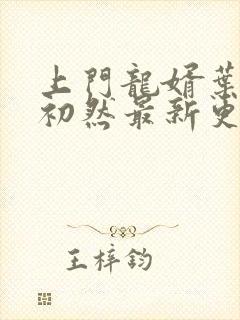 上門龍婿葉
初然最新更
王梓鈞